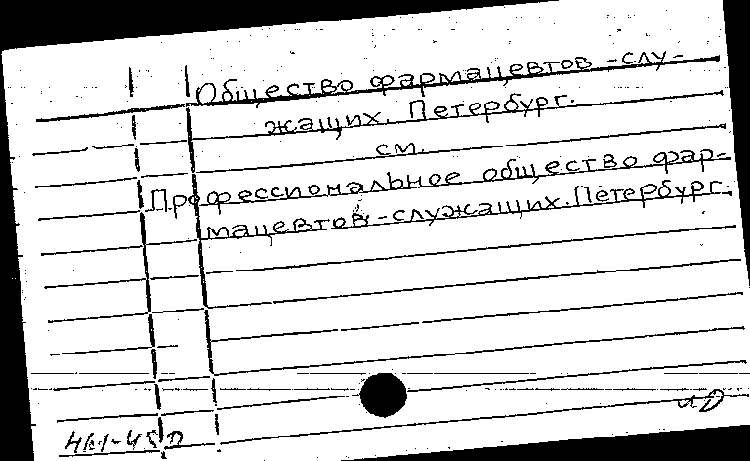 Общество фармацевтов-слу-
жащих. Петербург.
см.
Профессиональное общество фар-
мацевтов-служащих. Петербург.